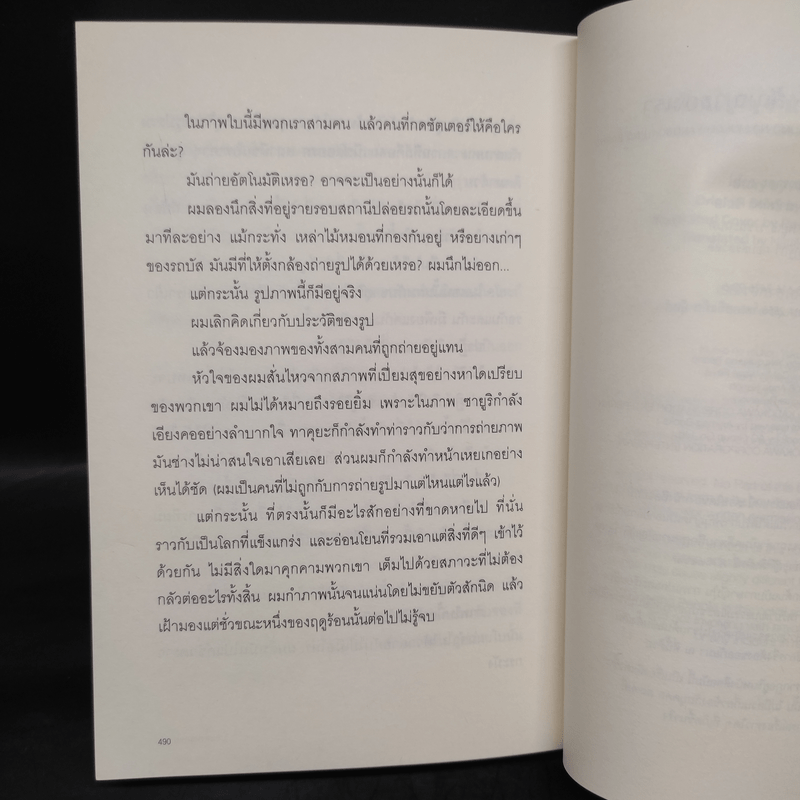 ในภาพใบนี้มีพวกเราสามคน แล้วคนที่กดชัตเตอร์ให้คือใคร
กันล่ะ?
มันถ่ายอัตโนมัติเหรอ? อาจจะเป็นอย่างนั้นก็ได้
ผมลองนึกสิ่งที่อยู่รายรอบสถานีปล่อยรถนั้นโดยละเอียดขึ้น
มาทีละอย่าง แม้กระทั่ง เหล่าไม้หมอนที่กองกันอยู่ หรือยางเก่าๆ
ของรถบัส มันมีที่ให้ตั้งกล้องถ่ายรูปได้ด้วยเหรอ? ผมนึกไม่ออก...
แต่กระนั้น รูปภาพนี้ก็มีอยู่จริง
ผมเลิกคิดเกี่ยวกับประวัติของรูป
แล้วจ้องมองภาพของทั้งสามคนที่ถูกถ่ายอยู่แทน
หัวใจของผมสั่นไหวจากสภาพที่เปี่ยมสุขอย่างหาใดเปรียบ
ของพวกเขา ผมไม่ได้หมายถึงรอยยิ้ม เพราะในภาพ ซายูริกำลัง
เอียงคออย่างลำบากใจ ทาคุยะก็กำลังทำท่าราวกับว่าการถ่ายภาพ
มันช่างไม่น่าสนใจเอาเสียเลย ส่วนผมก็กำลังทำหน้าเหยเกอย่าง
เห็นได้ชัด (ผมเป็นคนที่ไม่ถูกกับการถ่ายรูปมาแต่ไหนแต่ไรแล้ว)
แต่กระนั้น ที่ตรงนั้นก็มีอะไรสักอย่างที่ขาดหายไป ที่นั่น
ราวกับเป็นโลกที่แข็งแกร่ง และอ่อนโยนที่รวมเอาแต่สิ่งที่ดีๆ เข้าไว้
ด้วยกัน ไม่มีสิ่งใดมาคุกคามพวกเขา เต็มไปด้วยสภาวะที่ไม่ต้อง
กลัวต่ออะไรทั้งสิ้น ผมกำภาพนั้นจนแน่นโดยไม่ขยับตัวสักนิด แล้ว
เฝ้ามองแต่ชั่วขณะหนึ่งของฤดูร้อนนั้นต่อไปไม่รู้จบ
490